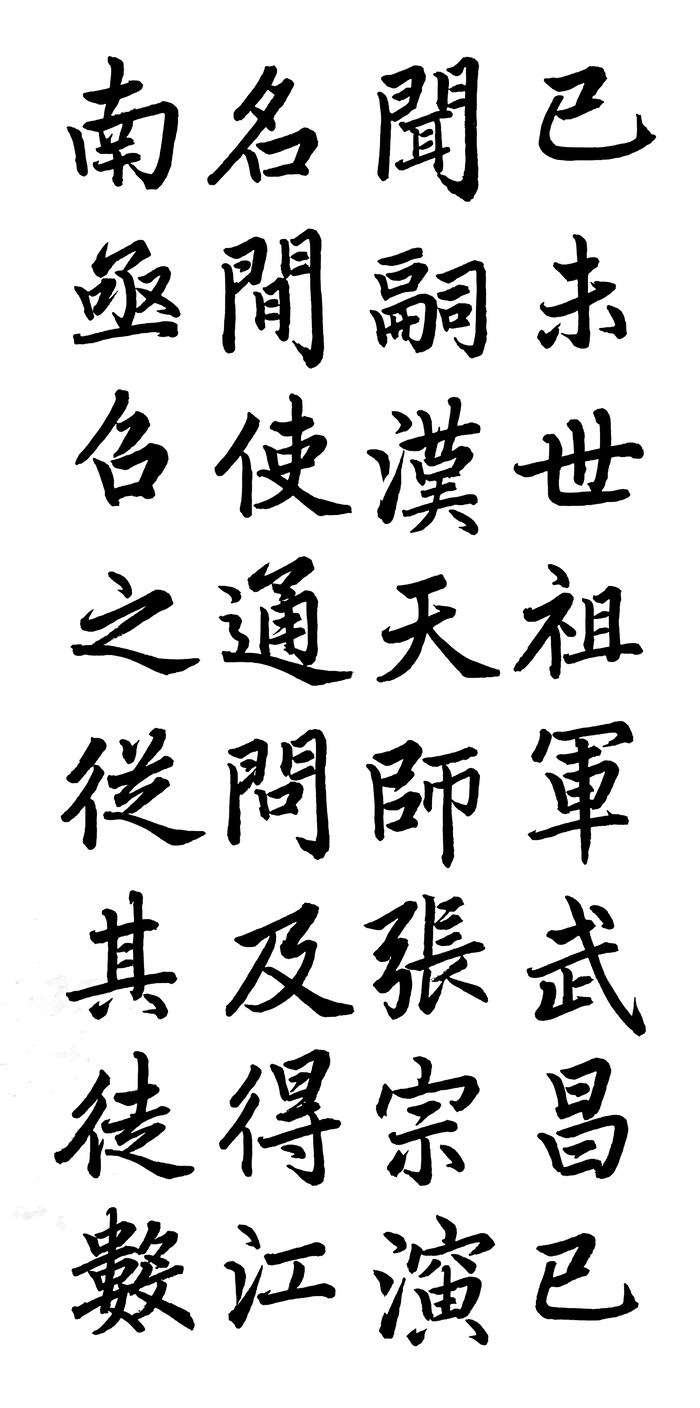 已未世祖軍武昌已
聞嗣漢天師張宗演
名間使通問及得江
南亟召之從其徒數